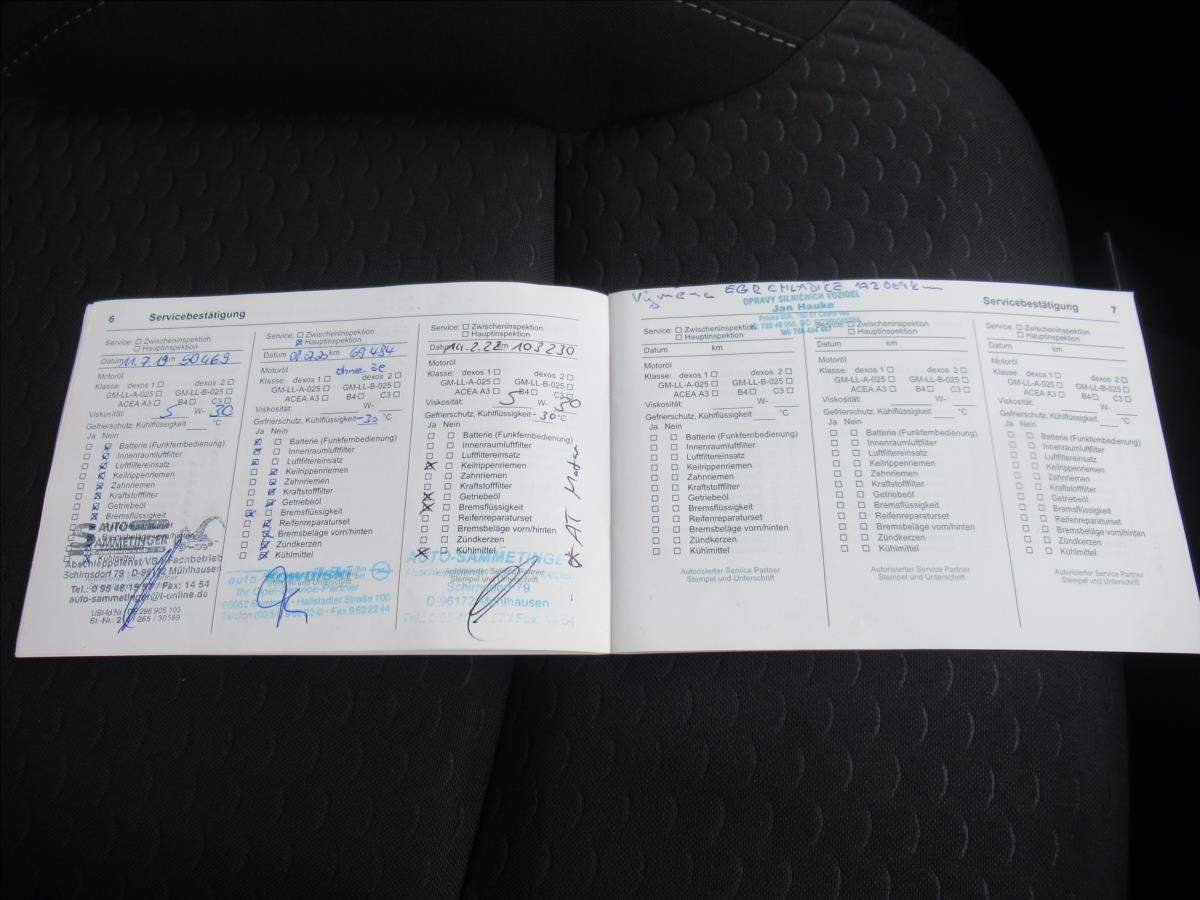 6 Servicebestätigung
Service: Zwischeninspektion
Hauptinspektion
Datum 11.7.19 km 50469
Motoröl
Klasse: dexos 1 dexos 2
GM-LL-A-025 GM-LL-B-025
ACEA A3 B4 C3
Viskosität: 5 W- 30
Gefrierschutz, Kühlflüssigkeit °C
Ja Nein
Batterie (Funkfernbedienung)
Innenraumluftfilter
Luftfiltereinsatz
Keilrippenriemen
Zahnriemen
Kraftstofffilter
Getriebeöl
Bremsflüssigkeit
AUTO
SAMMETINGER
Kühlmittel
Schirnsdorf 79 - D-96172 Mühlhausen
auto-sammetinger@t-online.de
Service: Zwischeninspektion
Hauptinspektion
Datum km 69484
Motoröl ohne öl
Klasse: dexos 1 dexos 2
GM-LL-A-025 GM-LL-B-025
ACEA A3 B4 C3
Viskosität: W-
Gefrierschutz, Kühlflüssigkeit -30 °C
Ja Nein
Batterie (Funkfernbedienung)
Innenraumluftfilter
Luftfiltereinsatz
Keilrippenriemen
Zahnriemen
Kraftstofffilter
Getriebeöl
Bremsflüssigkeit
Reifenreparaturset
Bremsbeläge vorn/hinten
Zündkerzen
Kühlmittel
auto Kowalski
Ihr Opel-Service-Partner
Hallstadter Straße 100
Fax 9622244
Service: Zwischeninspektion
Hauptinspektion
Datum 14.2.22 km 103230
Motoröl
Klasse: dexos 1 dexos 2
GM-LL-A-025 GM-LL-B-025
ACEA A3 B4 C3
Viskosität: 5 W- 30
Gefrierschutz, Kühlflüssigkeit -30 °C
Ja Nein
Batterie (Funkfernbedienung)
Innenraumluftfilter
Luftfiltereinsatz
Keilrippenriemen
Zahnriemen
Kraftstofffilter
Getriebeöl
Bremsflüssigkeit
Reifenreparaturset
Bremsbeläge vorn/hinten
Zündkerzen
Kühlmittel
* AT Motor
AUTO-SAMMETINGER
Autorisierter Service Partner
Stempel und Unterschrift
Schirnsdorf 79
D-96172 Mühlhausen
Výměna EGR CHLADIČE 172069 km
OPRAVY SILNIČNÍCH VOZIDEL
Jan Hauke
Servicebestätigung 7
Service: Zwischeninspektion
Hauptinspektion
Datum km
Motoröl
Klasse: dexos 1 dexos 2
GM-LL-A-025 GM-LL-B-025
ACEA A3 B4 C3
Viskosität: W-
Gefrierschutz, Kühlflüssigkeit °C
Ja Nein
Batterie (Funkfernbedienung)
Innenraumluftfilter
Luftfiltereinsatz
Keilrippenriemen
Zahnriemen
Kraftstofffilter
Getriebeöl
Bremsflüssigkeit
Reifenreparaturset
Bremsbeläge vorn/hinten
Zündkerzen
Kühlmittel
Autorisierter Service Partner
Stempel und Unterschrift
Service: Zwischeninspektion
Hauptinspektion
Datum km
Motoröl
Klasse: dexos 1 dexos 2
GM-LL-A-025 GM-LL-B-025
ACEA A3 B4 C3
Viskosität: W-
Gefrierschutz, Kühlflüssigkeit °C
Ja Nein
Batterie (Funkfernbedienung)
Innenraumluftfilter
Luftfiltereinsatz
Keilrippenriemen
Zahnriemen
Kraftstofffilter
Getriebeöl
Bremsflüssigkeit
Reifenreparaturset
Bremsbeläge vorn/hinten
Zündkerzen
Kühlmittel
Autorisierter Service Partner
Stempel und Unterschrift
Service: Zwischeninspektion
Hauptinspektion
Datum km
Motoröl
Klasse: dexos 1 dexos 2
GM-LL-A-025 GM-LL-B-025
ACEA A3 B4 C3
Viskosität: W-
Gefrierschutz, Kühlflüssigkeit °C
Ja Nein
Batterie (Funkfernbedienung)
Innenraumluftfilter
Luftfiltereinsatz
Keilrippenriemen
Zahnriemen
Kraftstofffilter
Getriebeöl
Bremsflüssigkeit
Reifenreparaturset
Bremsbeläge vorn/hinten
Zündkerzen
Kühlmittel
Autorisierter Service Partner
Stempel und Unterschrift